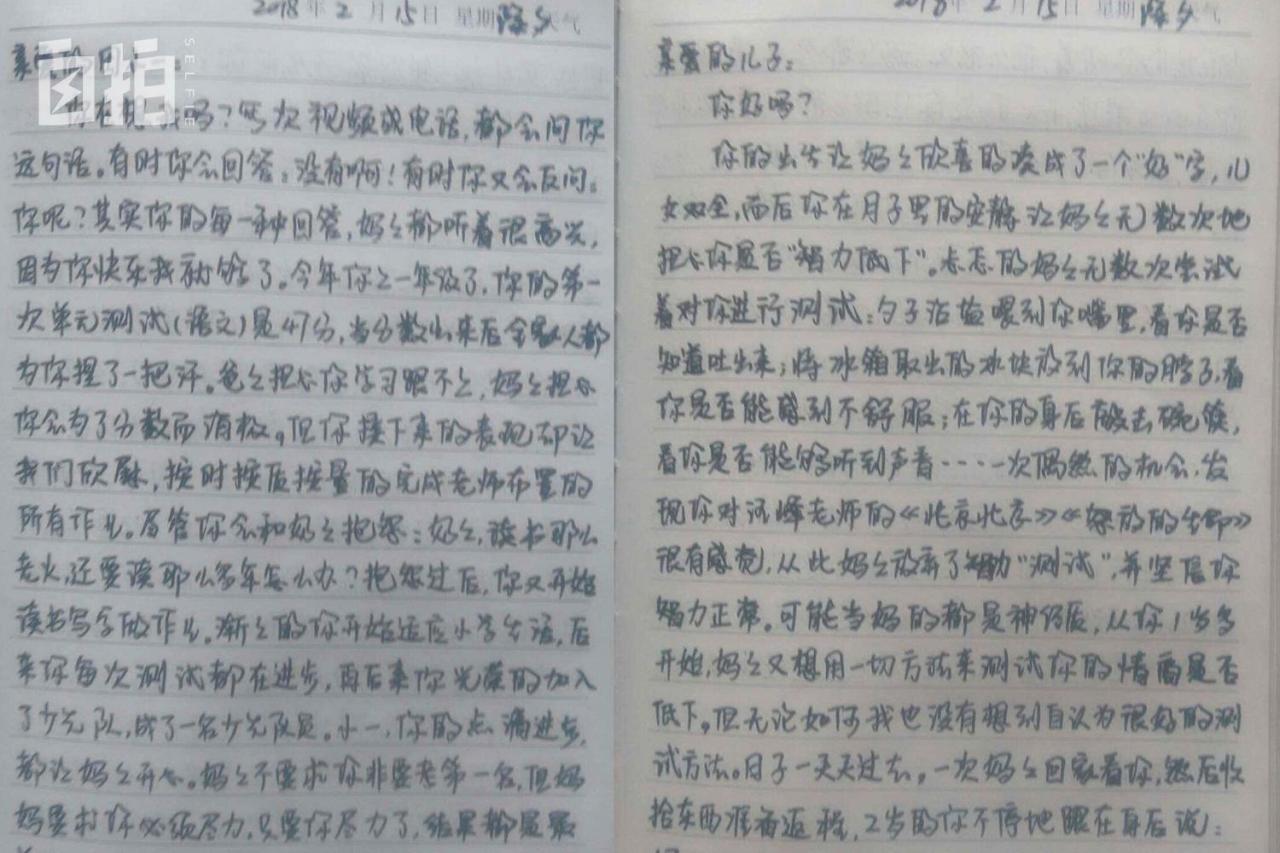 2018年2月15日 星期 除夕 天气
亲爱的
你在想我吗?每次视频或电话,都会问你
这句话。有时你会回答:没有啊!有时你又会反问:
你呢?其实你的每一种回答,妈々都听着很高兴,
因为你快乐我就够了。今年你上一年级了,你的第一
次单元测试(语文)是47分,当分数出来后全家人都
为你捏了一把汗。爸々担心你学习跟不上,妈々担心
你会为了分数而消极。但你接下来的表现却让
我们欣慰,按时按质按量的完成老师布置的
所有作业。尽管你会和妈々抱怨:妈々,读书那么
老火,还要读那么多年怎么办?抱怨过后,你又开始
读书写字做作业。渐々的你开始适应小学生活,后
来你每次测试都在进步,再后来你光荣的加入
了少先队,成了一名少先队员。小一,你的点滴进步,
都让妈々开心。妈々不要求你非要考第一名,但妈
妈要求你必须尽力,只要你尽力了,结果都是最
2018年2月15日 星期 除夕 天气
亲爱的儿子:
你好吗?
你的出生让妈々欣喜的凑成了一个"好"字,儿
女双全,而后你在月子里的安静让妈々无数次地
担心你是否"智力低下"。忐忑的妈々无数次尝试
着对你进行测试:勺子沾盐喂到你嘴里,看你是否
知道吐出来;将冰箱取出的冰块放到你的脖子,看
你是否能感到不舒服;在你的身后敲击碗筷,
看你是否能够听到声音····一次偶然的机会,发
现你对汪峰老师的《北京北京》《怒放的生命》
很有感觉,从此妈々放弃了智力"测试",并坚信你
智力正常。可能当妈的都是神经质,从你1岁多
开始,妈々又想用一切方法来测试你的情商是否
低下。但无论如何我也没有想到自认为很好的测
试方法。日子一天天过去,一次妈々回家看你,然后收
拾东西准备返程,2岁的你不停地跟在身后说: